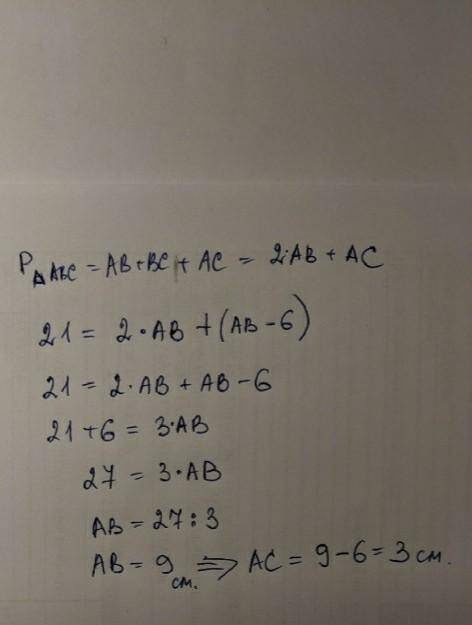 P△ABC = AB+BC + AC = 2·AB + AC
21 = 2·AB +(AB-6)
21 = 2·AB + AB - 6
21 + 6 = 3·AB
27 = 3·AB
AB = 27 : 3
AB = 9 см. ⇒ AC = 9-6 = 3 см.